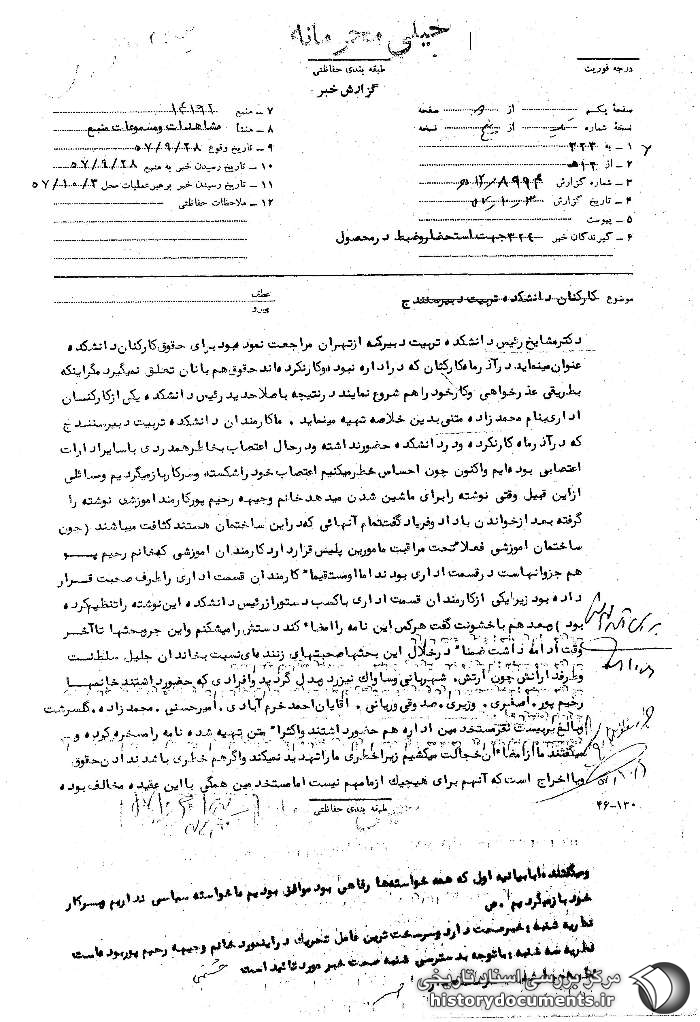 خیلی محرمانه
طبقه بندی حفاظتی
گزارش خبر
درجه فوریت
صفحه یکم از صفحه
نسخه شماره از پنج نسخه
۱ - به ۳۲۳
۲ - از ۱۲ ھ
۳ - شماره گزارش
۴ - تاریخ گزارش
۵ - پیوست
۶ - گیرندگان خبر ۳۲۴ جهت استحضار و ضبط در محصول
۷ - منبع ۱۴۱۹۲
۸ - منشأ مشاهدات و مسموعات منبع
۹ - تاریخ وقوع ۵۷/۹/۲۸
۱۰ - تاریخ رسیدن خبر به منبع ۵۷/۹/۲۸
۱۱ - تاریخ رسیدن خبر برهبر عملیات محل ۵۷/۱۰/۳
۱۲ - ملاحظات حفاظتی
موضوع کارکنان دانشکده تربیت دبیر سنندج
عطف
پیرو
دکتر مشایخ رئیس دانشکده تربیت دبیر که از تهران مراجعت نموده بود برای حقوق کارکنان دانشکده
عنوان مینماید در آذرماه کارکنان که در اداره نبوده و کار نکرده اند حقوق هم بانان تعلق نمیگیرد مگر اینکه
بطریقی عذرخواهی و کار خود را هم شروع نمایند در نتیجه باصلاحدید رئیس دانشکده یکی از کارکنان
اداری بنام محمدزاده متنی بدین خلاصه تهیه مینماید . ما کارمندان دانشکده تربیت دبیر سنندج
که در آذرماه کار نکرده و در دانشکده حضور نداشته و در حال اعتصاب بخاطر همدردی با سایر ادارات
اعتصابی بوده ایم واکنون چون احساس خطر میکنیم اعتصاب خود را شکسته و سر کار باز میگردیم و مسائلی
از این قبیل وقتی نوشته را برای ماشین شدن میدهد خانم وجیهه رحیم پور کارمند آموزشی نوشته را
گرفته بعد از خواندن با داد و فریاد گفت تمام آنهائی که در این ساختمان هستند کثافت میباشند (چون
ساختمان آموزشی فعلا تحت مراقبت مامورین پلیس قرار دارد کارمندان آموزشی که خانم رحیم پور
هم جزو آنهاست در قسمت اداری بودند اما او مستقیما کارمندان قسمت اداری را طرف صحبت قرار
داده بود زیرا یکی از کارمندان قسمت اداری با کسب دستور از رئیس دانشکده این نوشته را تنظیم کرده
بود ) وبعد هم باخشونت گفت هرکس این نامه را امضاء کند دستش را میشکنم واین جروبحثها تا آخر
وقت ادامه داشت ضمنا در خلال این بحثها صحبتهای زننده ای نسبت بخاندان جلیل سلطنت
وطرفدارانش چون ارتش، شهربانی وساواک نیز رد و بدل گردید وافرادی که حضور داشتند خانمها
رحیم پور . اصغری . وزیری . صدوقی وربانی . آقایان احمد خرم آبادی . امیرحسنی . محمدزاده . گلسرشت
وبالغ بر بیست نفر مستخدمین اداره هم حضور داشتند واکثرا متن تهیه شده نامه را مسخره کرده و
میگفتند ما از امضاء آن خجالت میکشیم زیرا خطری ما را تهدید نمیکند واگر هم خطری باشد ندادن حقوق
ویا اخراج است که آنهم برای هیچیک از ما مهم نیست اما مستخدمین همگی با این عقیده مخالف بوده
طبقه بندی حفاظتی
۴۶-۱۳۰
ومیگفتند ما با بیانیه اول که همه خواسته ها رفاهی بود موافق بودیم ما خواسته سیاسی نداریم وسرکار
خود بازمیگردیم . ص
نظریه شنبه : خبر صحت دارد وسرسخت ترین عامل تحریک در این مورد خانم وجیهه رحیم پور بوده است
نظریه سه شنبه : باتوجه به دسترسی شنبه صحت خبر مورد تائید است
مرکز بررسی اسناد تاریخی
historydocuments.ir